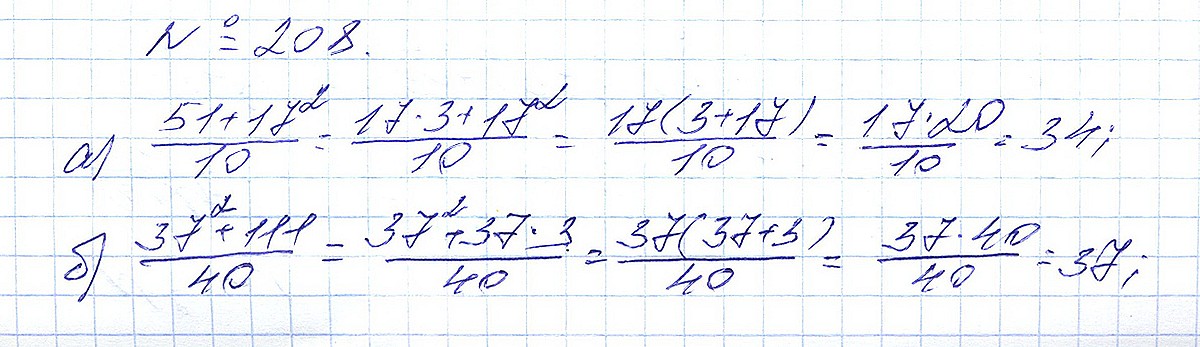 № 208.
а) (51+17²)/10 = (17·3+17²)/10 = 17(3+17)/10 = 17·20/10 = 34;
б) (37²+111)/40 = (37²+37·3)/40 = 37(37+3)/40 = 37·40/40 = 37;